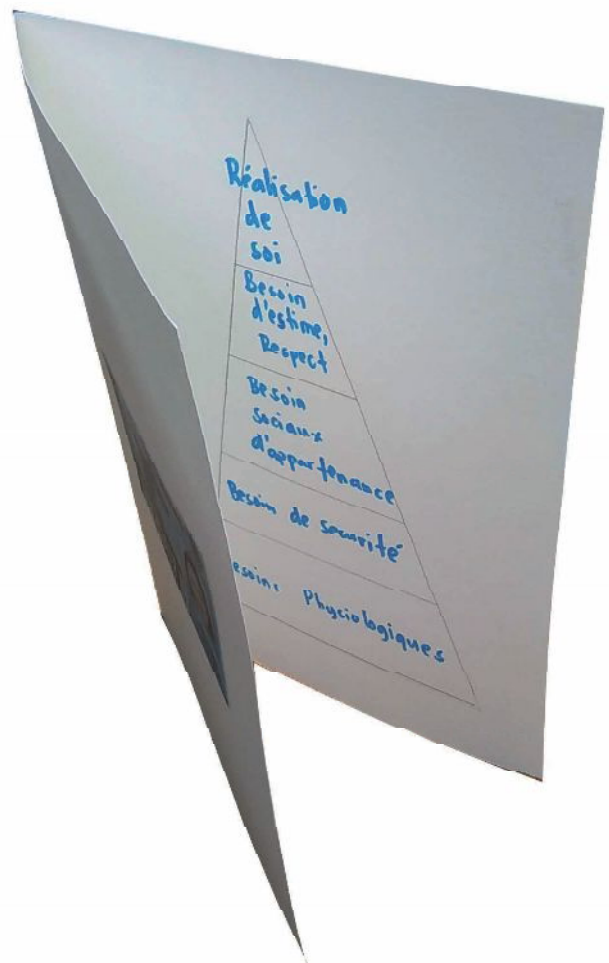 Réalisation
de
soi
Besoin
d'estime,
Respect
Besoin
sociaux
d'appartenance
Besoin de securité
esoins Physiologiques